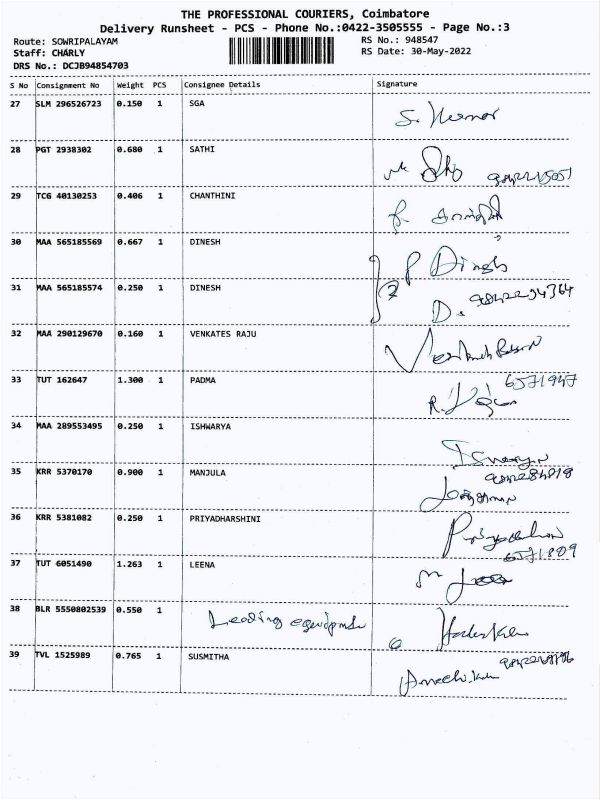 THE PROFESSIONAL COURIERS, Coimbatore
Delivery Runsheet - PCS - Phone No.:0422-3505555 - Page No.:3
Route: SOWRIPALAYAM RS No.: 948547
Staff: CHARLY RS Date: 30-May-2022
DRS No.: DCJB94854703
S No Consignment No Weight PCS Consignee Details Signature
27 SLM 296526723 0.150 1 SGA
28 PGT 2938302 0.680 1 SATHI
29 TCG 40130253 0.406 1 CHANTHINI
30 MAA 565185569 0.667 1 DINESH P Dinesh
31 MAA 565185574 0.250 1 DINESH D.
32 MAA 290129670 0.160 1 VENKATES RAJU
33 TUT 162647 1.300 1 PADMA 6571947
34 MAA 289553495 0.250 1 ISHWARYA
35 KRR 5370170 0.900 1 MANJULA
36 KRR 5381082 0.250 1 PRIYADHARSHINI
37 TUT 6051490 1.263 1 LEENA 6571809
38 BLR 5550802539 0.550 1 Leading
39 TVL 1525989 0.765 1 SUSMITHA